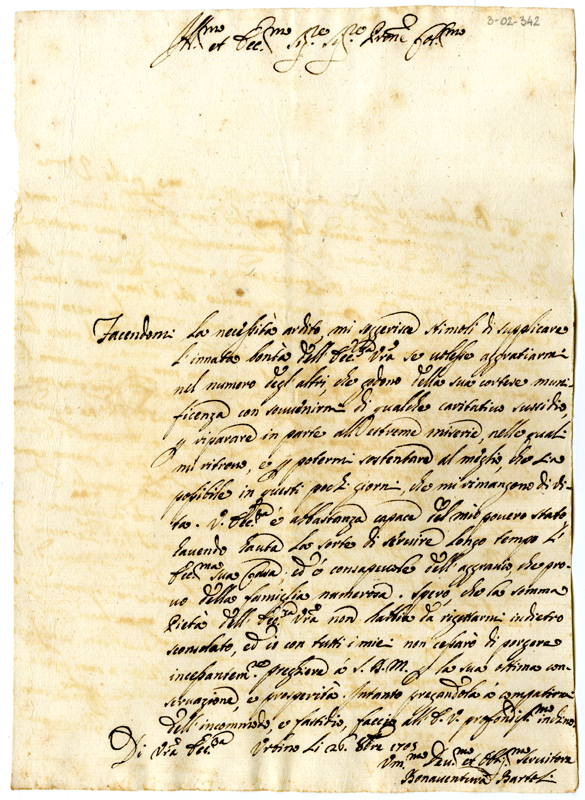 3-02-342
Ill.mo et Ecc.mo Sig.re Sig.re Prone Col.mo
Facendomi la necessità ardito, mi soggerisce stimoli di supplicare
l'innata bontà dell'Ecc.za Vra se volesse aggratiarmi
nel numero degl'altri, che godono della sua cortese muni-
ficenza con sovvenirmi di qualche caritativo sussidio,
p riparare in parte all'estreme miserie, nelle quali
mi ritrovo, e p potermi sostentare al meglio, che sia
possibile in questi pochi giorni, che mi rimangono di vi-
ta. V. Ecc.za è abbastanza capace del mio povero stato
havendo hauta la sorte di servire longo tempo l'
Ecc.ma sua Casa, ed è consapevole dell'aggravio, che pro-
vo della famiglia numerosa. Spero, che la somma
Pietà dell'Ecc.za Vra non lattia da rigettarmi indietro
sconsolato, ed io con tutti i miei non cessarò di porgere
incessantem.te preghiere à S. D. M. p la sua ottima con-
servazione e prosperità. Intanto pregandola à compatirmi
dell'incommodo, e fastidio, faccio all'E. V. profondiss.mo inchino
Di Vra Ecc.za Urbino li 26. 8bre 1705
Um.mo Dev.mo et Obl.mo Servitore
Bonaventura Bartoli